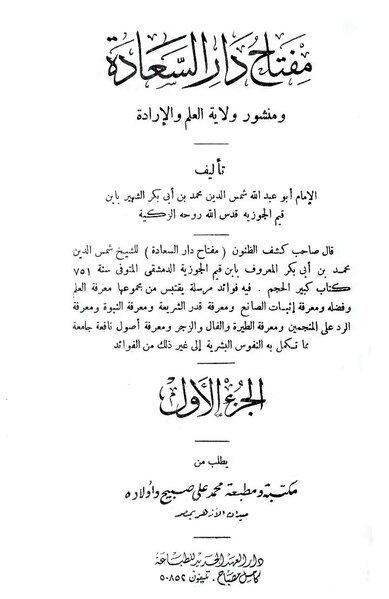 مفتاح دار السعادة
ومنشور ولاية العلم والإرادة
تأليف
الإمام أبو عبد الله شمس الدين محمد بن أبي بكر الشهير بابن
قيم الجوزيه قدس الله روحه الزكية
قال صاحب كشف الظنون ( مفتاح دار السعادة ) للشيخ شمس الدين
محمد بن أبي بكر المعروف بابن قيم الجوزية الدمشقي المتوفى سنة ٧٥١
كتاب كبير الحجم . فيه فوائد مرسلة يقتبس من مجموعها معرفة العلم
وفضله ومعرفة إثبات الصانع ومعرفة قدر الشريعة ومعرفة النبوة ومعرفة
الرد على المنجمين ومعرفة الطيرة والفال والزجر ومعرفة أصول نافعة جامعة
مما تكمل به النفوس البشرية إلى غير ذلك من الفوائد
الجزء الأول
يطلب من
مكتبة ومطبعة محمد علي صبيح وأولاده
ميدان الأزهر بمصر
دار العهد الجديد للطباعة
كامل مصباح . تليفون ٥٠٨٥٢